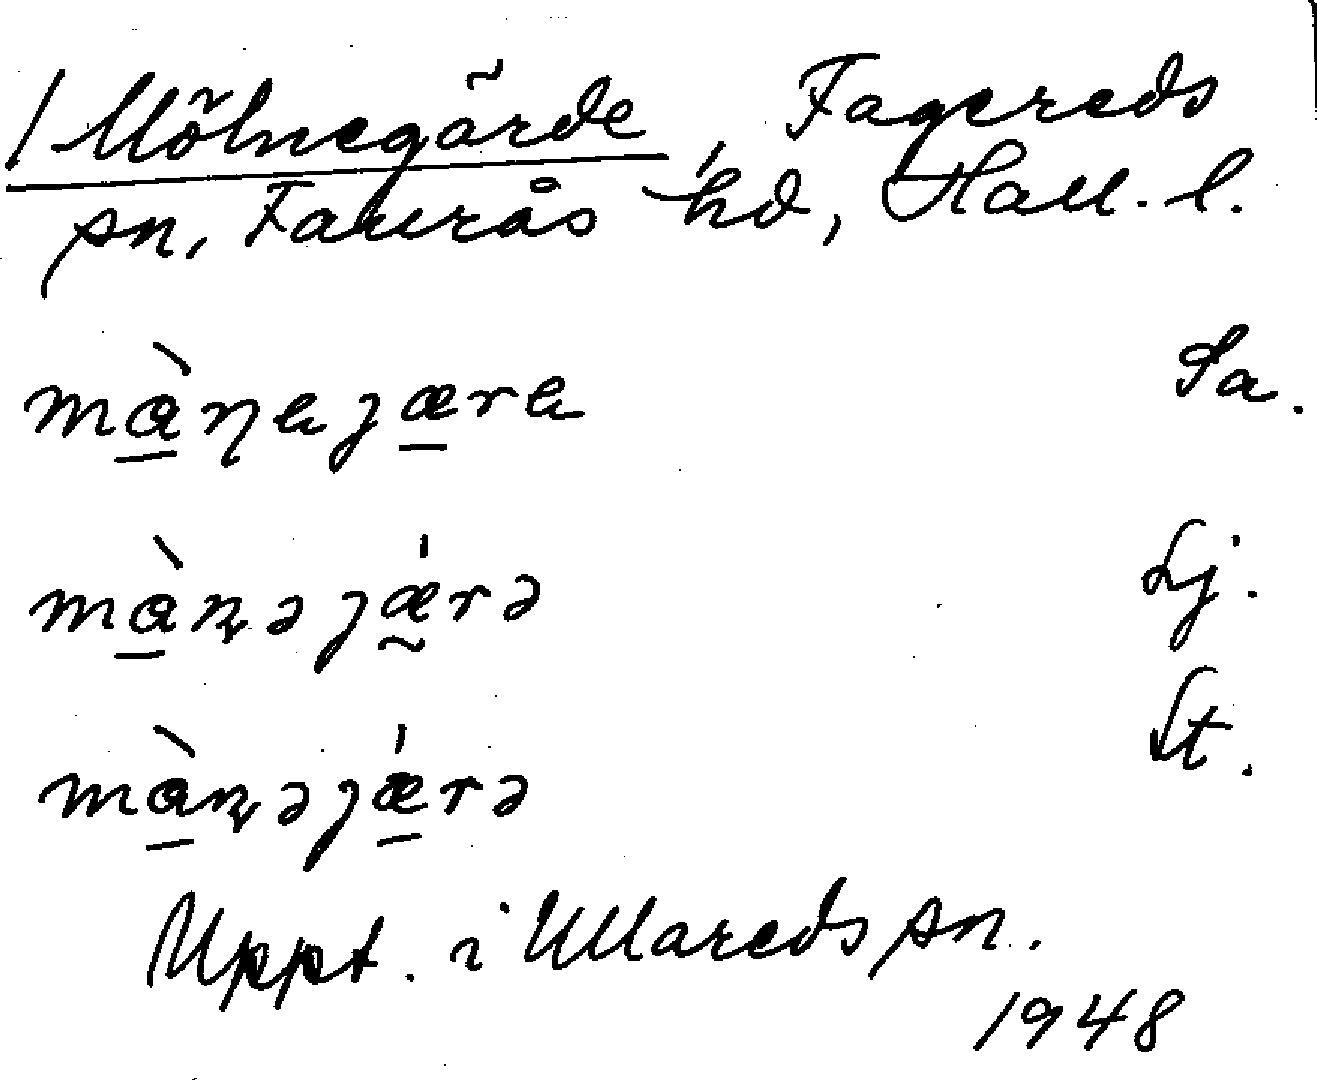 / Mölnegärde, Fagereds
sn, Faurås hd, Hall. l.
mɑ̠̀ɳeȷæ̠re Sa.
mɑ̠̀ɳəȷǽ̰rə Lj.
mɑ̠̀ɳəȷǽ̠rə St.
Uppt. i Ullareds sn.
1948